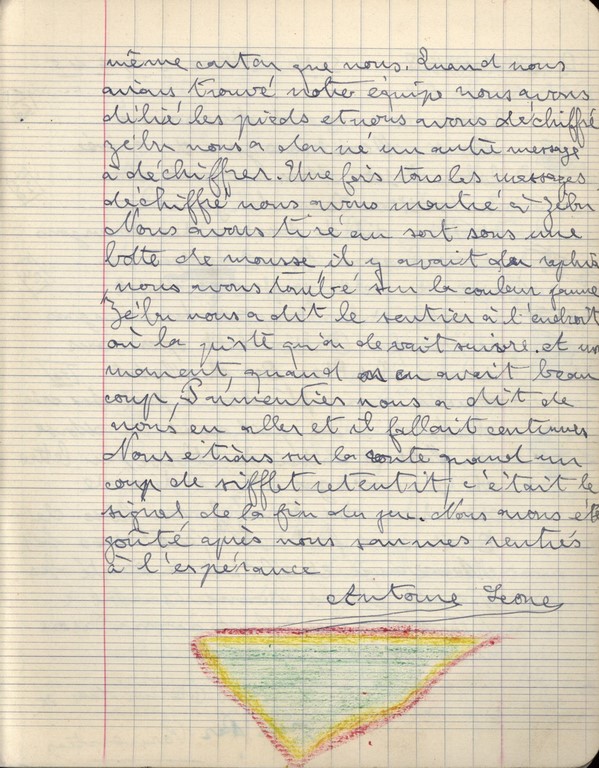 même carton que nous. Quand nous
avions trouvé notre équipe nous avons
délié les pieds et nous avons déchiffré
zébu nous a donné un autre message
à déchiffrer. Une fois tous les messages
déchiffré nous avons montré à zébu
Nous avons tiré au sort sous une
botte de mousse il y avait du raphia
nous avons tombé sur la couleur jaune
Zébu nous a dit le sentier à l'endroit
où la piste qu'on devait suivre. et un
moment, quand on en avait beau
coup, nous a dit de
nous en aller et il fallait continuer
Nous étions sur la route quand un
coup de sifflet retentit, c'était le
signal de la fin du jeu. Nous avons été
goûté après nous sommes rentrés
à l'espérance
Antoine Leone